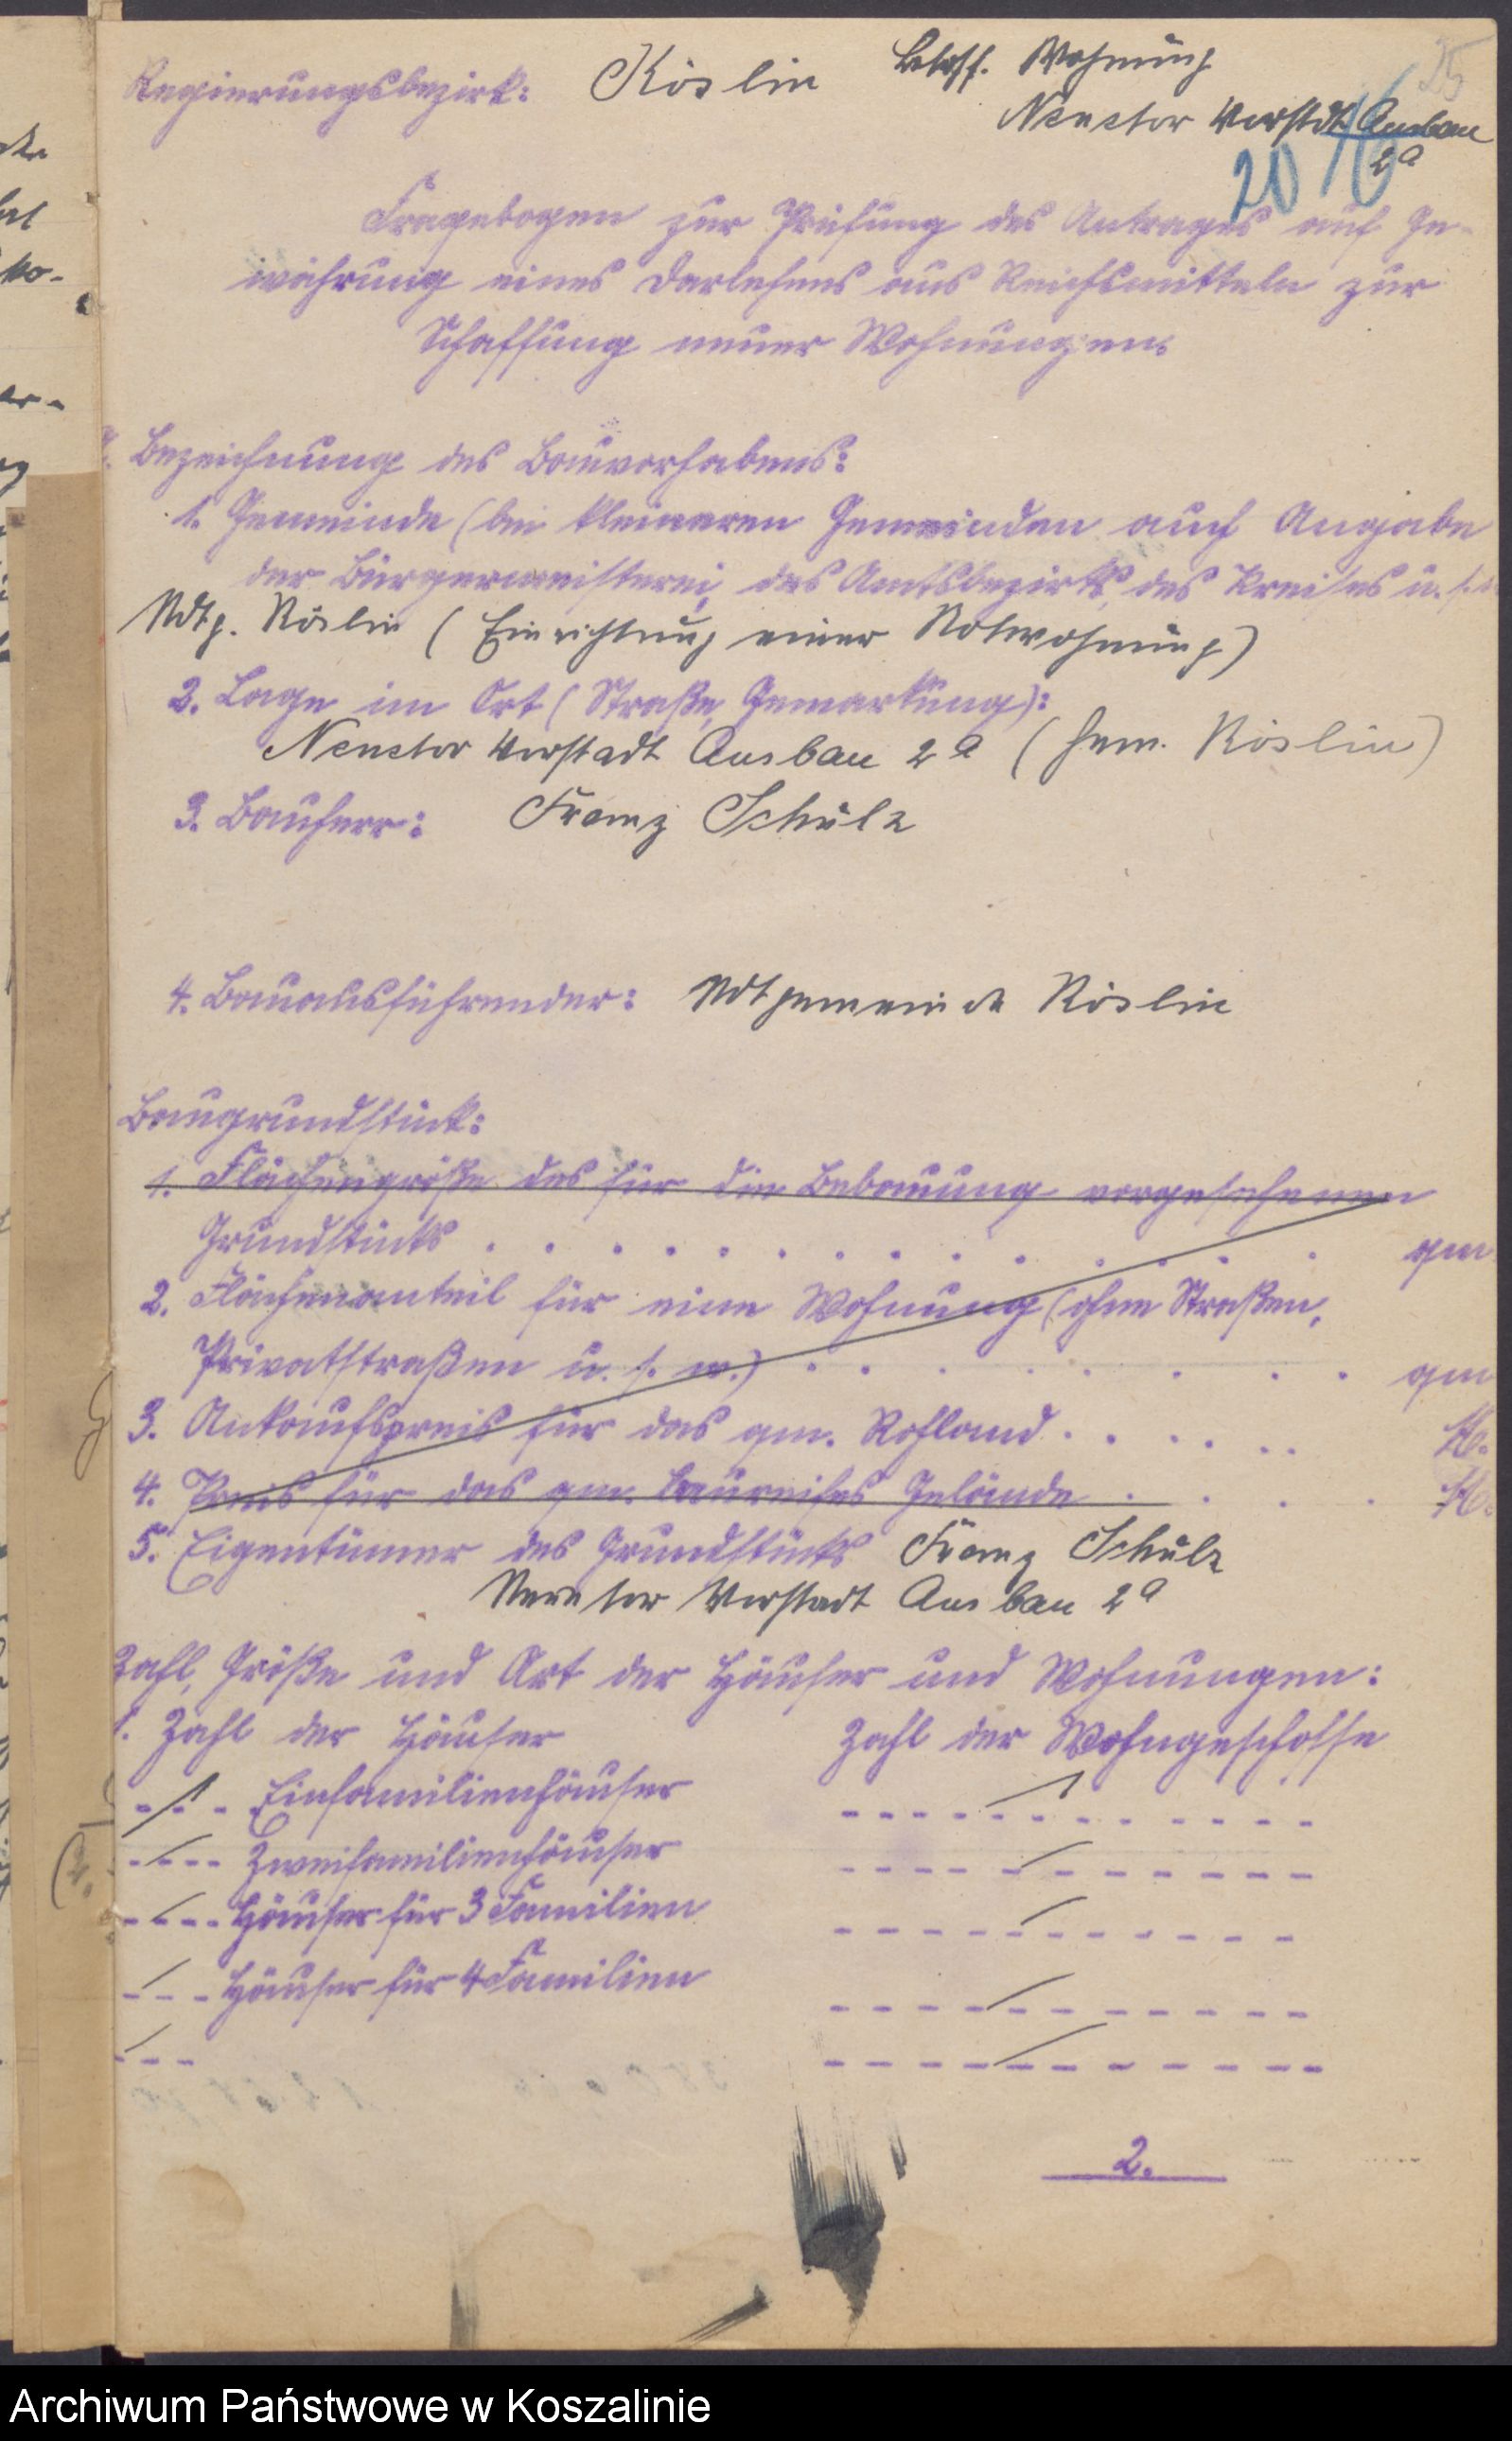 25
Regierungsbezirk: Köslin
Betrff. Wohnung
Neuetor Vorstdt Ausbau
2a
20 16
Fragebogen zur Prüfung des Antrages auf Ge-
währung eines Darlehens aus Reichsmitteln zur
Schaffung neuer Wohnungen.
Bezeichnung des Bauvorhabens:
1. Gemeinde (bei kleineren Gemeinden auch Angabe
der Bürgermeisterei, des Amtsbezirks, des Kreises u. s.
Stdtg. Köslin (Einrichtung einer Notwohnung)
2. Lage im Ort (Straße, Gemarkung):
Neuetor Vorstadt Ausbau 2a (Gem. Köslin)
3. Bauherr: Franz Schulz
4. Bauausführender: Stdtgemeinde Köslin
Baugrundstück:
1. Flächengröße des für die Bebauung vorgesehenen
Grundstücks . . . . . . . . . . . . . . qm
2. Flächenanteil für eine Wohnung (ohne Straßen,
Privatstraßen u. s. w.) . . . . . . . . . qm
3. Ankaufspreis für das qm. Rohland . . . . . . M.
4. Preis für das qm. baureifes Gelände . . . . M.
5. Eigentümer des Grundstücks Franz Schulz
Neuetor Vorstadt Ausbau 2a
Zahl, Größe und Art der Häuser und Wohnungen:
1. Zahl der Häuser Zahl der Wohngeschosse
1 Einfamilienhäuser 1
/ Zweifamilienhäuser /
/ Häuser für 3 Familien /
/ Häuser für 4 Familien /
/ /
2.
Archiwum Państwowe w Koszalinie